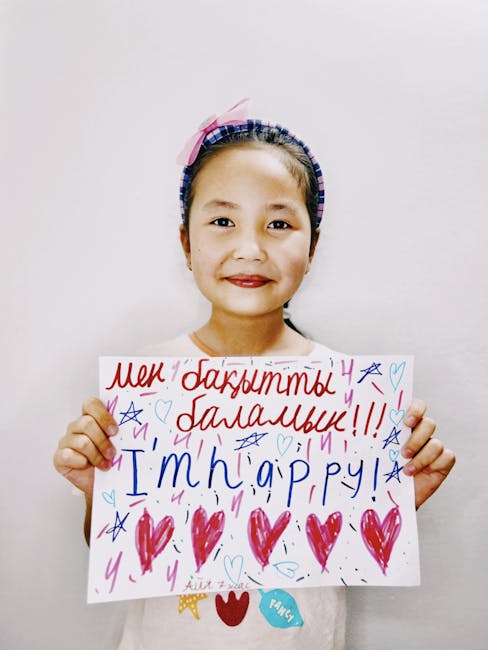 Мен бақытты
баламын!!!
I'm happy!
7 жас
FANCY